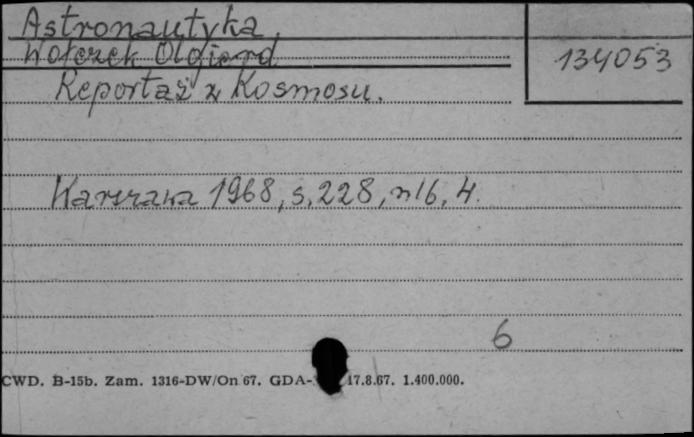 Astronautyka
Wołczek Olgierd
134053
Reportaż z Kosmosu.
Warszawa 1968, s. 228, nlb, 4.
6
CWD. B-15b. Zam. 1316-DW/On 67. GDA- 17.8.67. 1.400.000.